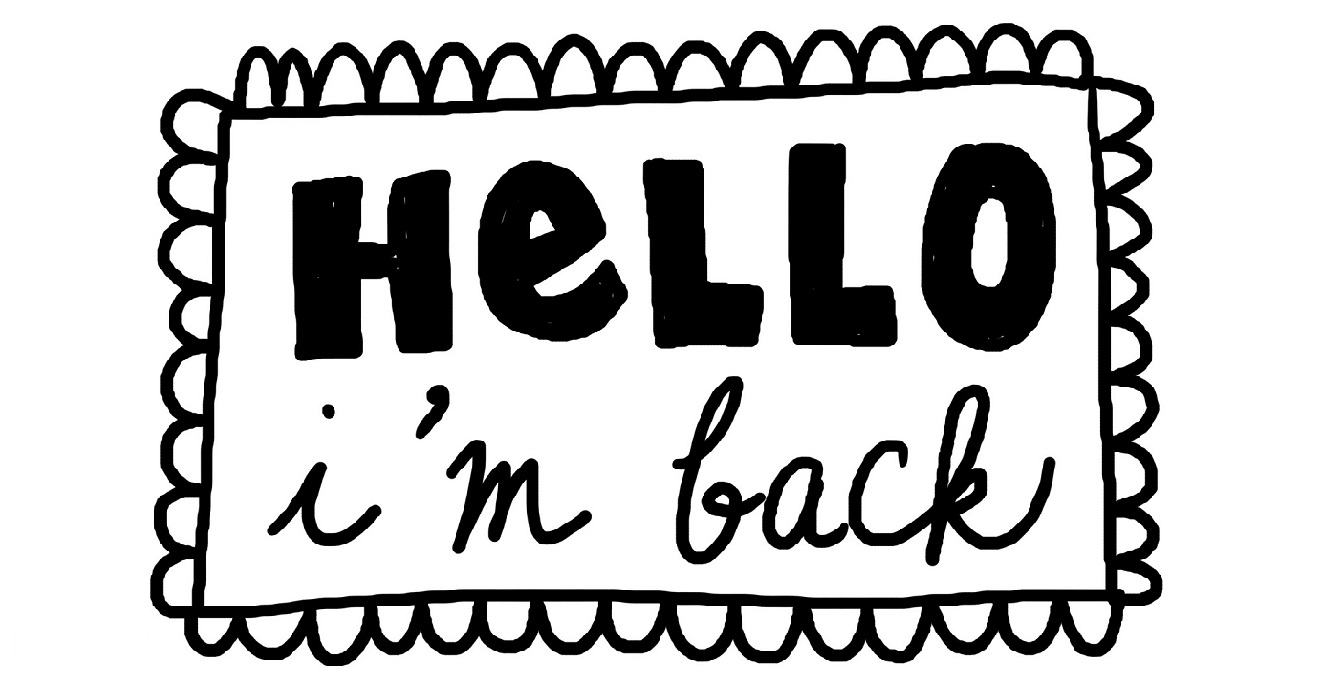 HeLLO
i'm back